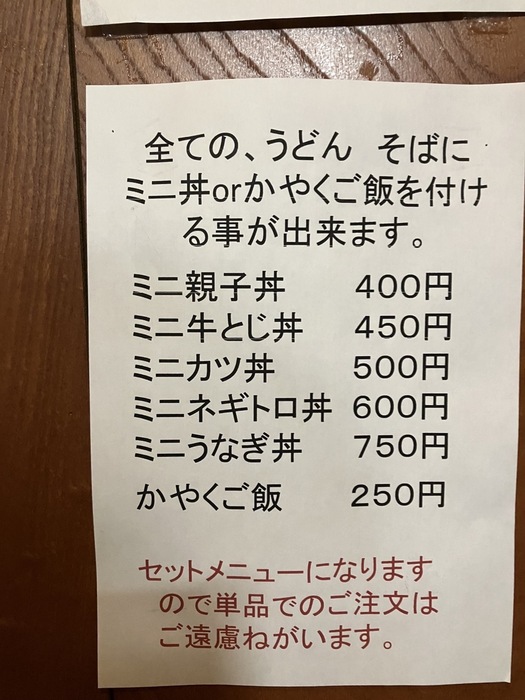 全ての、うどん そばに
ミニ丼orかやくご飯を付け
る事が出来ます。
ミニ親子丼 400円
ミニ牛とじ丼 450円
ミニカツ丼 500円
ミニネギトロ丼 600円
ミニうなぎ丼 750円
かやくご飯 250円
セットメニューになります
ので単品でのご注文は
ご遠慮ねがいます。